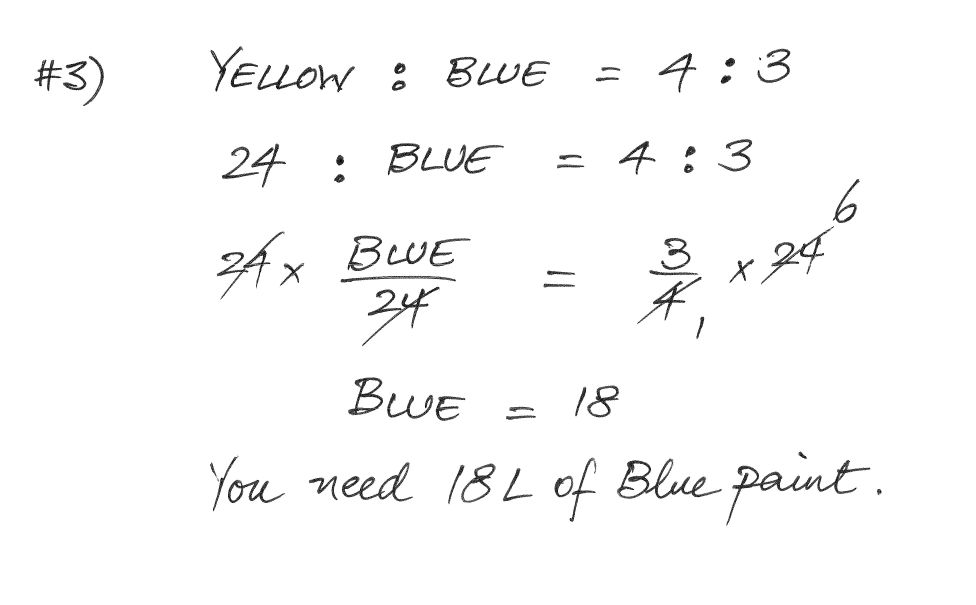 #3) YELLOW : BLUE = 4 : 3
24 : BLUE = 4 : 3
6
24 x BLUE = 3 x 24
24 4 1
BLUE = 18
You need 18 L of Blue paint.